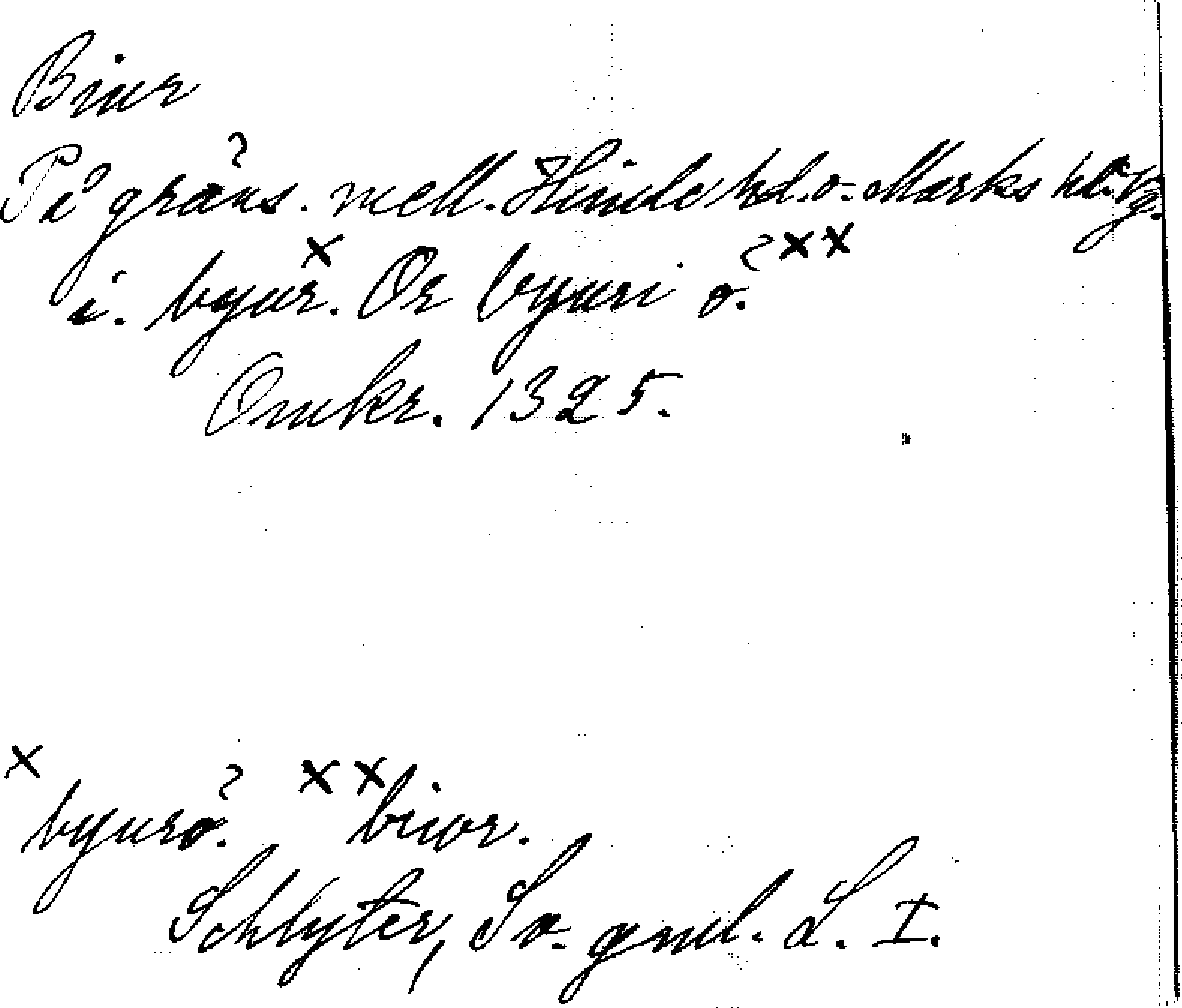 Biur
På gräns. mell. Kinds hd. o. Marks hd. Vg.
i. byur.ˣ Or byuri o.ˣˣ
Omkr. 1325.
ˣ byuro. ˣˣ biior.
Schlyter, Sv. gml. L. I.